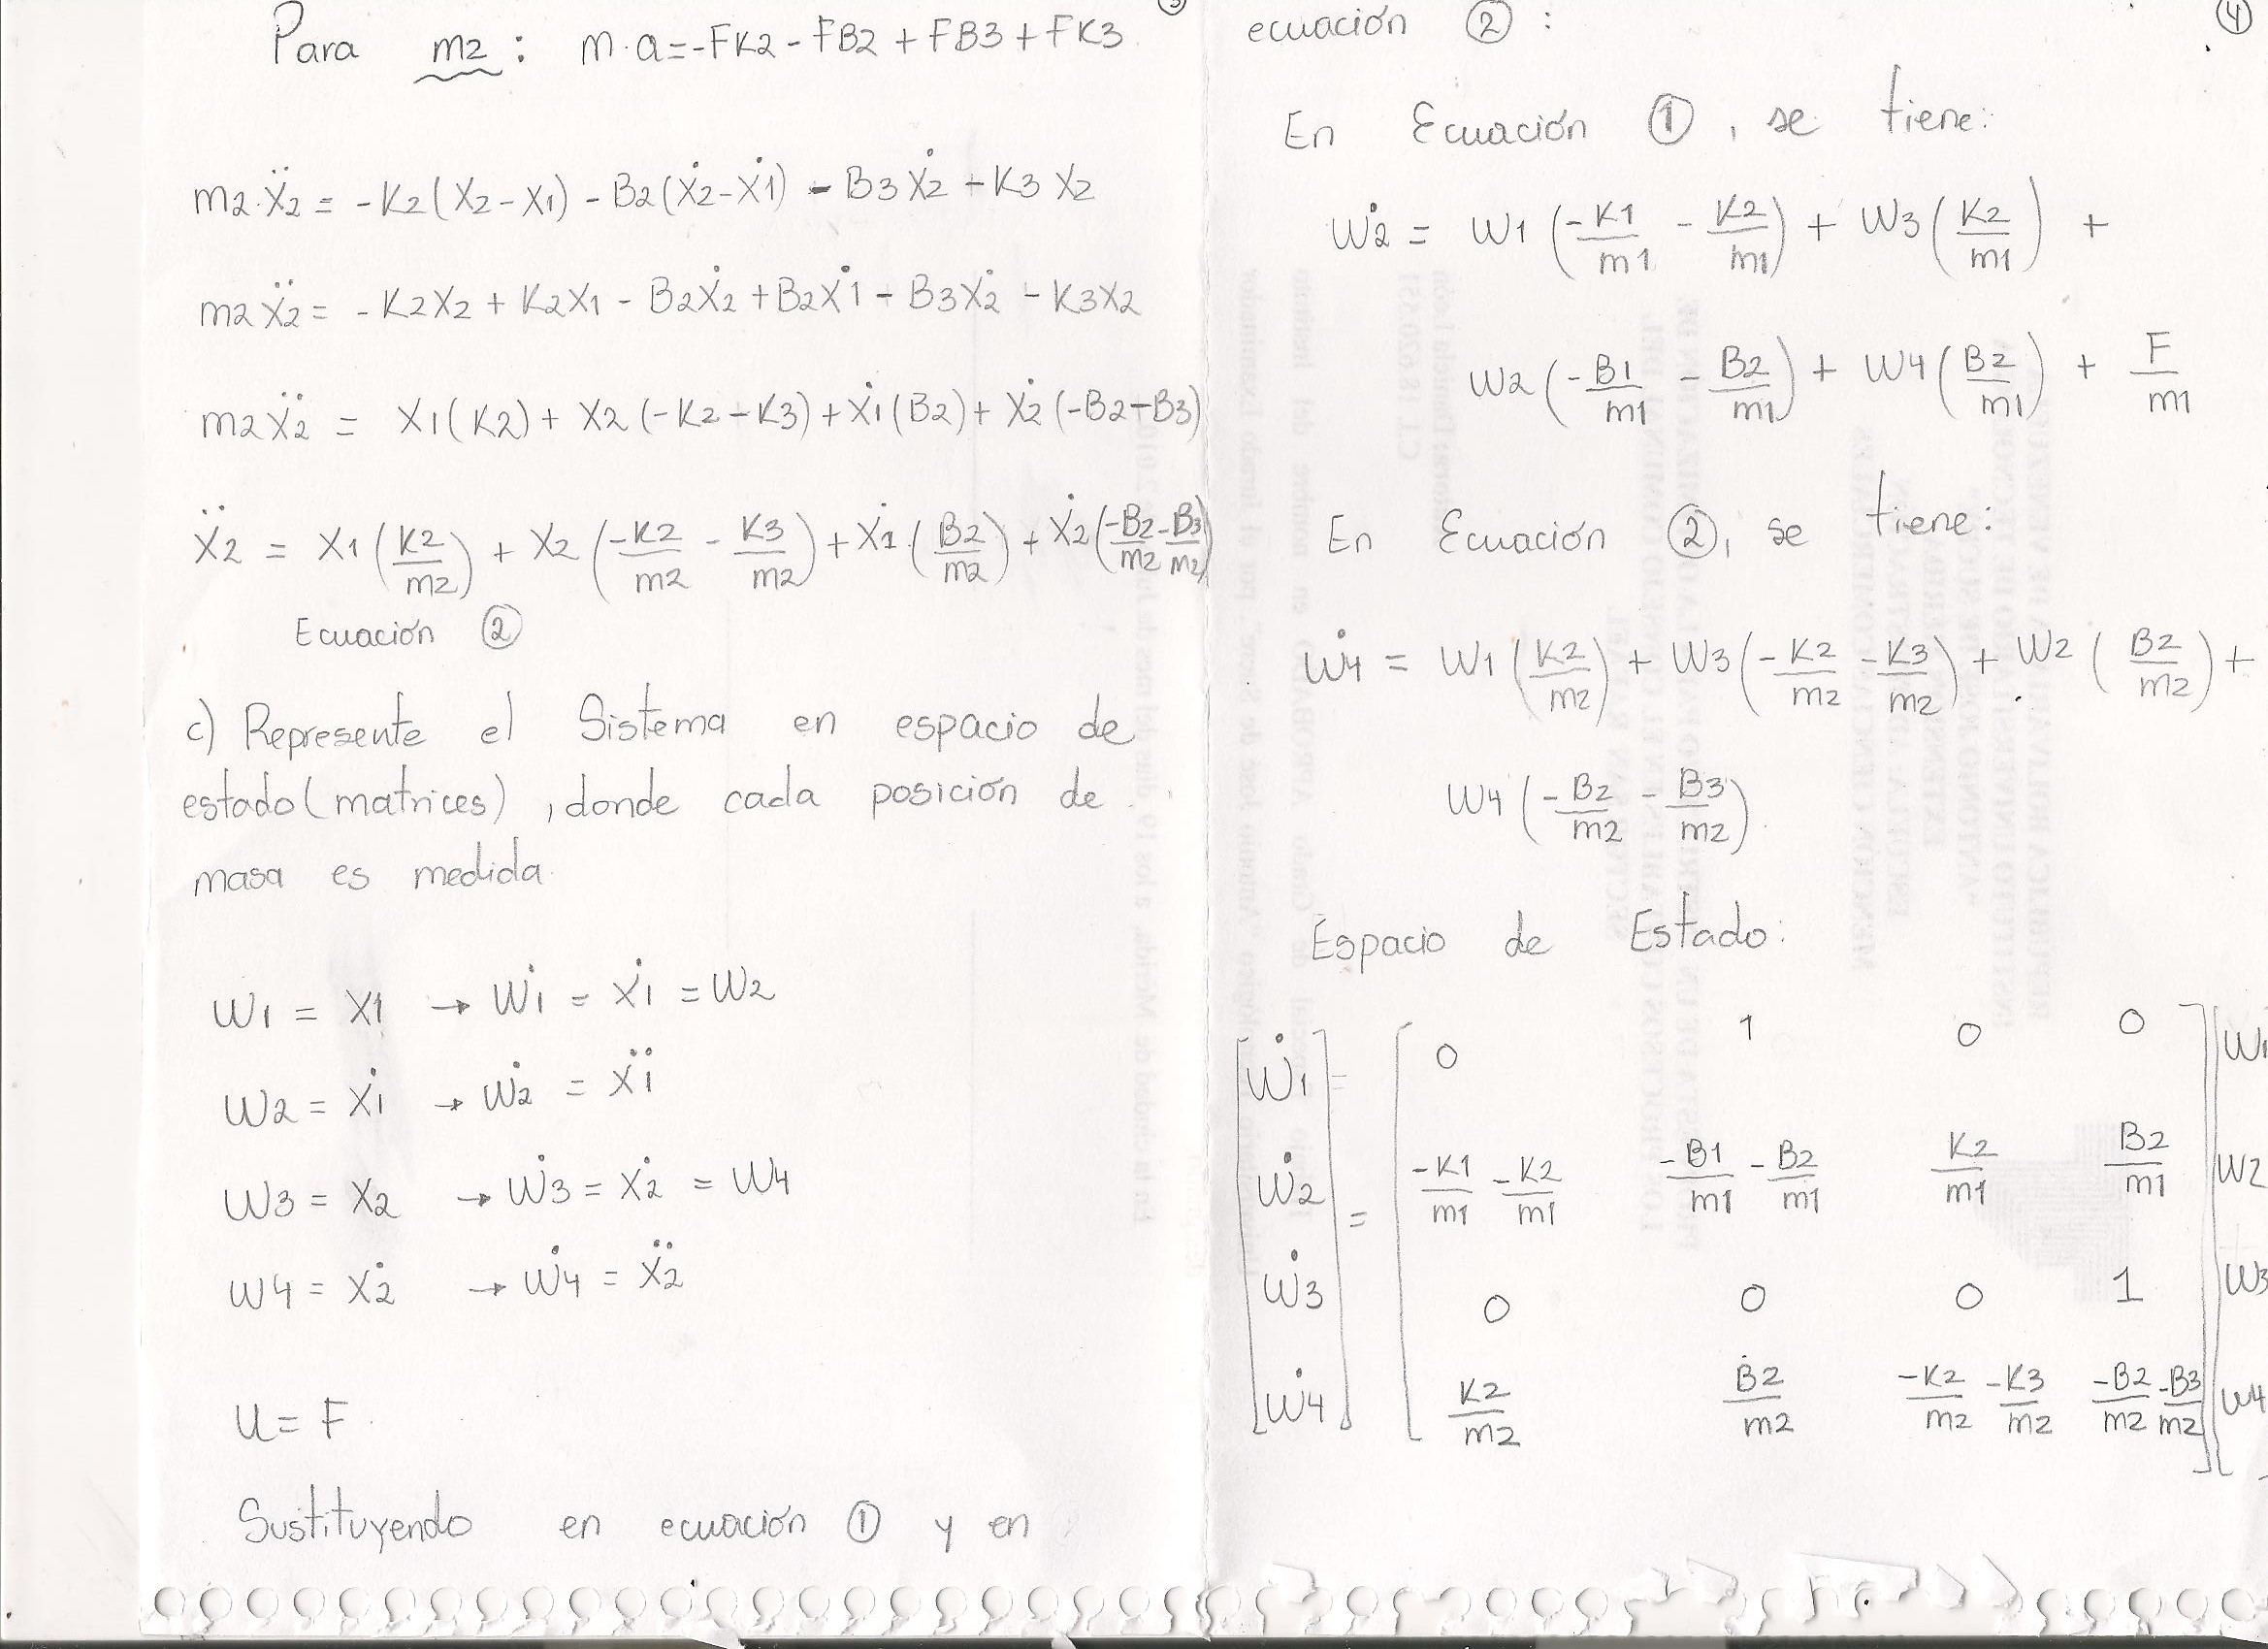 ③
Para m2: m·a=-FK2-FB2+FB3+FK3
m2·Ẍ2 = -K2(X2-X1) - B2(Ẋ2-Ẋ1) - B3Ẋ2 + K3X2
m2Ẍ2 = -K2X2 + K2X1 - B2Ẋ2 + B2Ẋ1 - B3Ẋ2 - K3X2
m2Ẍ2 = X1(K2) + X2(-K2-K3) + Ẋ1(B2) + Ẋ2(-B2-B3)
Ẍ2 = X1(K2/m2) + X2(-K2/m2 - K3/m2) + Ẋ1·(B2/m2) + Ẋ2(-B2/m2 - B3/m2)
Ecuación ②
c) Represente el Sistema en espacio de
estado (matrices), donde cada posición de
masa es medida.
W1 = X1 → Ẇ1 = Ẋ1 = W2
W2 = Ẋ1 → Ẇ2 = Ẍ1
W3 = X2 → Ẇ3 = Ẋ2 = W4
W4 = Ẋ2 → Ẇ4 = Ẍ2
U = F
Sustituyendo en ecuación ① y en
④
ecuación ②:
En Ecuación ①, se tiene:
Ẇ2 = W1(-K1/m1 - K2/m1) + W3(K2/m1) +
W2(-B1/m1 - B2/m1) + W4(B2/m1) + F/m1
En Ecuación ②, se tiene:
Ẇ4 = W1(K2/m2) + W3(-K2/m2 - K3/m2) + W2(B2/m2) +
W4(-B2/m2 - B3/m2)
Espacio de Estado:
[Ẇ1] = [0 1 0 0] [W1
[Ẇ2] = [-K1/m1 - K2/m1 -B1/m1 - B2/m1 K2/m1 B2/m1] [W2
[Ẇ3] [0 0 0 1] [W3
[Ẇ4] [K2/m2 B2/m2 -K2/m2 - K3/m2 -B2/m2 - B3/m2] [W4